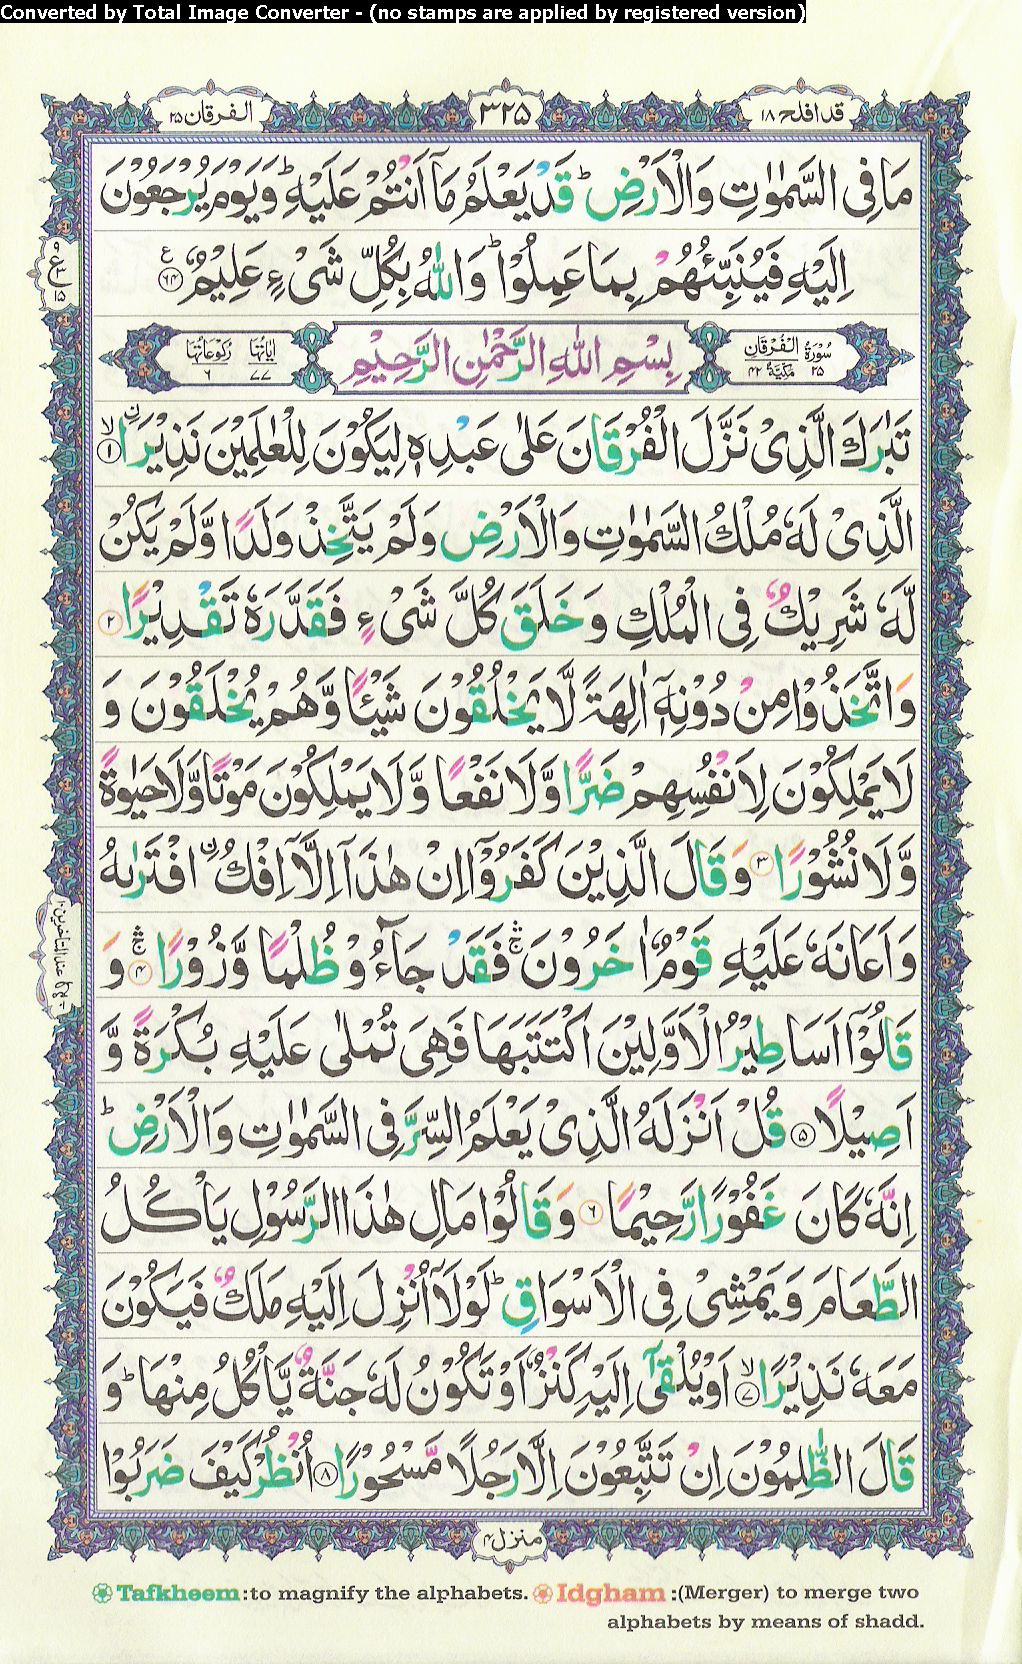 Converted by Total Image Converter - (no stamps are applied by registered version)
الفرقان ٢٥
٣٢٥
قد افلح ١٨
مَا فِی السَّمٰوٰتِ وَالْاَرْضِ ؕ قَدْ یَعْلَمُ مَاۤ اَنْتُمْ عَلَیْهِ ؕ وَیَوْمَ یُرْجَعُوْنَ
اِلَیْهِ فَیُنَبِّئُهُمْ بِمَا عَمِلُوْا ؕ وَاللّٰهُ بِكُلِّ شَیْءٍ عَلِیْمٌ ۝٦٤
سُوْرَةُ الْفُرْقَانِ
٢٥ مَكِّیَّةٌ ٤٢
بِسْمِ اللّٰهِ الرَّحْمٰنِ الرَّحِیْمِ
اٰیَاتُهَا ٧٧
رُكُوْعَاتُهَا ٦
تَبٰرَكَ الَّذِیْ نَزَّلَ الْفُرْقَانَ عَلٰی عَبْدِهٖ لِیَكُوْنَ لِلْعٰلَمِیْنَ نَذِیْرَا ۙ۝١
الَّذِیْ لَهٗ مُلْكُ السَّمٰوٰتِ وَالْاَرْضِ وَلَمْ یَتَّخِذْ وَلَدًا وَّلَمْ یَكُنْ
لَّهٗ شَرِیْكٌ فِی الْمُلْكِ وَخَلَقَ كُلَّ شَیْءٍ فَقَدَّرَهٗ تَقْدِیْرًا ۝٢
وَاتَّخَذُوْا مِنْ دُوْنِهٖۤ اٰلِهَةً لَّا یَخْلُقُوْنَ شَیْـًٔا وَّهُمْ یُخْلَقُوْنَ وَ
لَا یَمْلِكُوْنَ لِاَنْفُسِهِمْ ضَرًّا وَّلَا نَفْعًا وَّلَا یَمْلِكُوْنَ مَوْتًا وَّلَا حَیٰوةً
وَّلَا نُشُوْرًا ۝٣ وَقَالَ الَّذِیْنَ كَفَرُوْۤا اِنْ هٰذَاۤ اِلَّاۤ اِفْكُ ۨافْتَرٰىهُ
وَاَعَانَهٗ عَلَیْهِ قَوْمٌ اٰخَرُوْنَ ۛۚ فَقَدْ جَآءُوْ ظُلْمًا وَّزُوْرًا ۛۚ۝٤ وَ
قَالُوْۤا اَسَاطِیْرُ الْاَوَّلِیْنَ اكْتَتَبَهَا فَهِیَ تُمْلٰی عَلَیْهِ بُكْرَةً وَّ
اَصِیْلًا ۝٥ قُلْ اَنْزَلَهُ الَّذِیْ یَعْلَمُ السِّرَّ فِی السَّمٰوٰتِ وَالْاَرْضِ ؕ
اِنَّهٗ كَانَ غَفُوْرًا رَّحِیْمًا ۝٦ وَقَالُوْا مَالِ هٰذَا الرَّسُوْلِ یَاْكُلُ
الطَّعَامَ وَیَمْشِیْ فِی الْاَسْوَاقِ ؕ لَوْلَاۤ اُنْزِلَ اِلَیْهِ مَلَكٌ فَیَكُوْنَ
مَعَهٗ نَذِیْرًا ۙ۝٧ اَوْ یُلْقٰۤی اِلَیْهِ كَنْزٌ اَوْ تَكُوْنُ لَهٗ جَنَّةٌ یَّاْكُلُ مِنْهَا ؕ وَ
قَالَ الظّٰلِمُوْنَ اِنْ تَتَّبِعُوْنَ اِلَّا رَجُلًا مَّسْحُوْرًا ۝٨ اُنْظُرْ كَیْفَ ضَرَبُوْا
منزل ٤
Tafkheem :to magnify the alphabets. Idgham :(Merger) to merge two
alphabets by means of shadd.